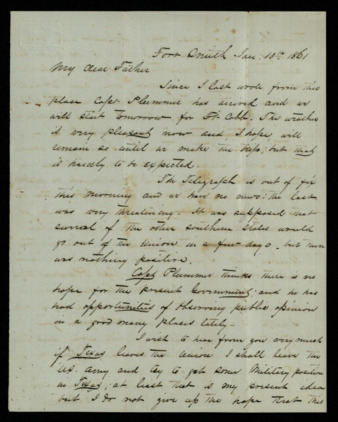 Fort Smith Jan. 10th 1861
My dear Father
Since I last wrote from this
place Capt Plummer has arrived and we
will start tomorrow for Ft. Cobb. The weather
is very pleasant now and I hope will
remain so until we make the trip; but that
is hardly to be expected.
The Telegraph is out of fix
this morning and we have no news; the last
was very threatening. It was supposed that
several of the other southern States would
go out of the Union in a few days, but there
was nothing positive.
Capt Plummer thinks there is no
hope for the present Government; and he has
had opportunities of observing public opinion
in a good many places lately.
I wish to hear from you very much
if Texas leaves the Union I shall leave the
U.S. Army and try to get some Military position
in Texas; at least that is my present idea
but I do not give up the hope that this